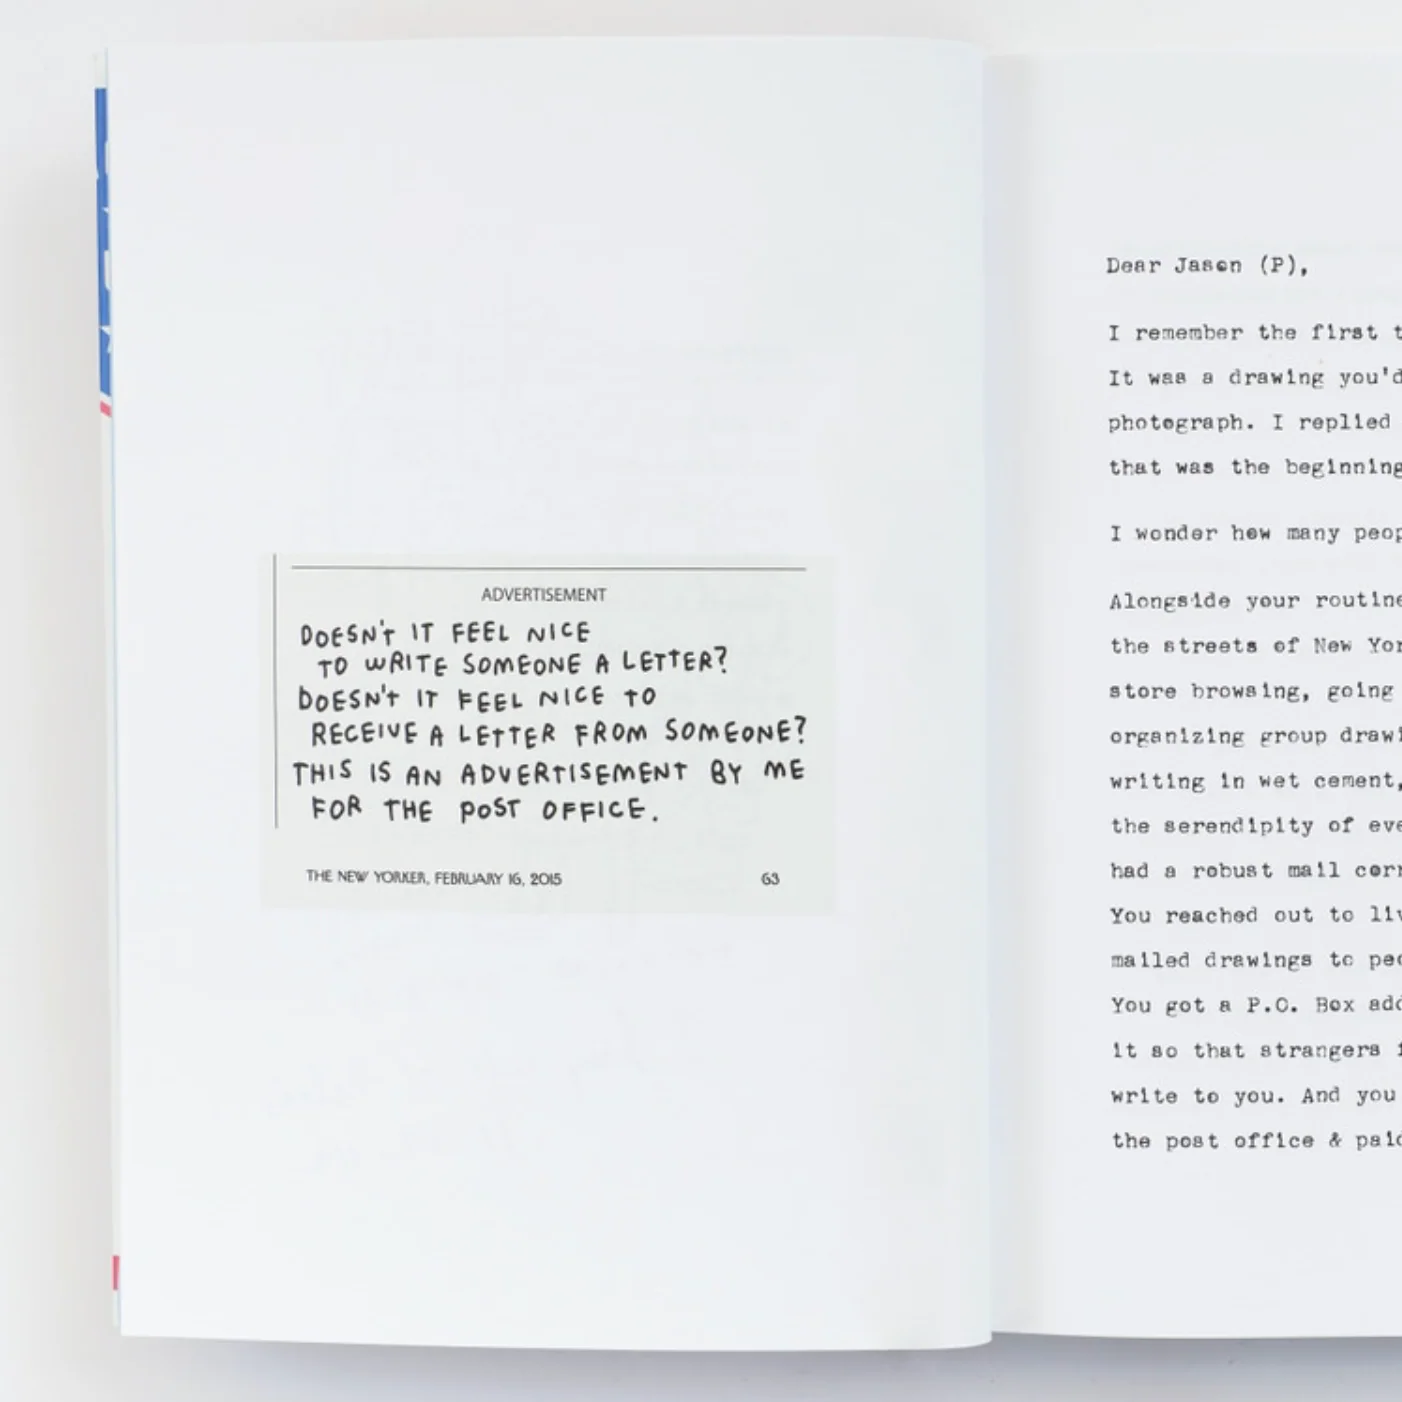 ADVERTISEMENT
DOESN'T IT FEEL NICE
TO WRITE SOMEONE A LETTER?
DOESN'T IT FEEL NICE TO
RECEIVE A LETTER FROM SOMEONE?
THIS IS AN ADVERTISEMENT BY ME
FOR THE POST OFFICE.
THE NEW YORKER, FEBRUARY 16, 2015 63
Dear Jason (P),
I remember the first
It was a drawing you'd
photograph. I replied
that was the beginning
I wonder how many
Alongside your routine
the streets of New
store browsing, going
organizing group
writing in wet cement,
the serendipity of
had a robust mail
You reached out to
mailed drawings to
You got a P.O. Box
it so that strangers
write to you. And you
the post office &